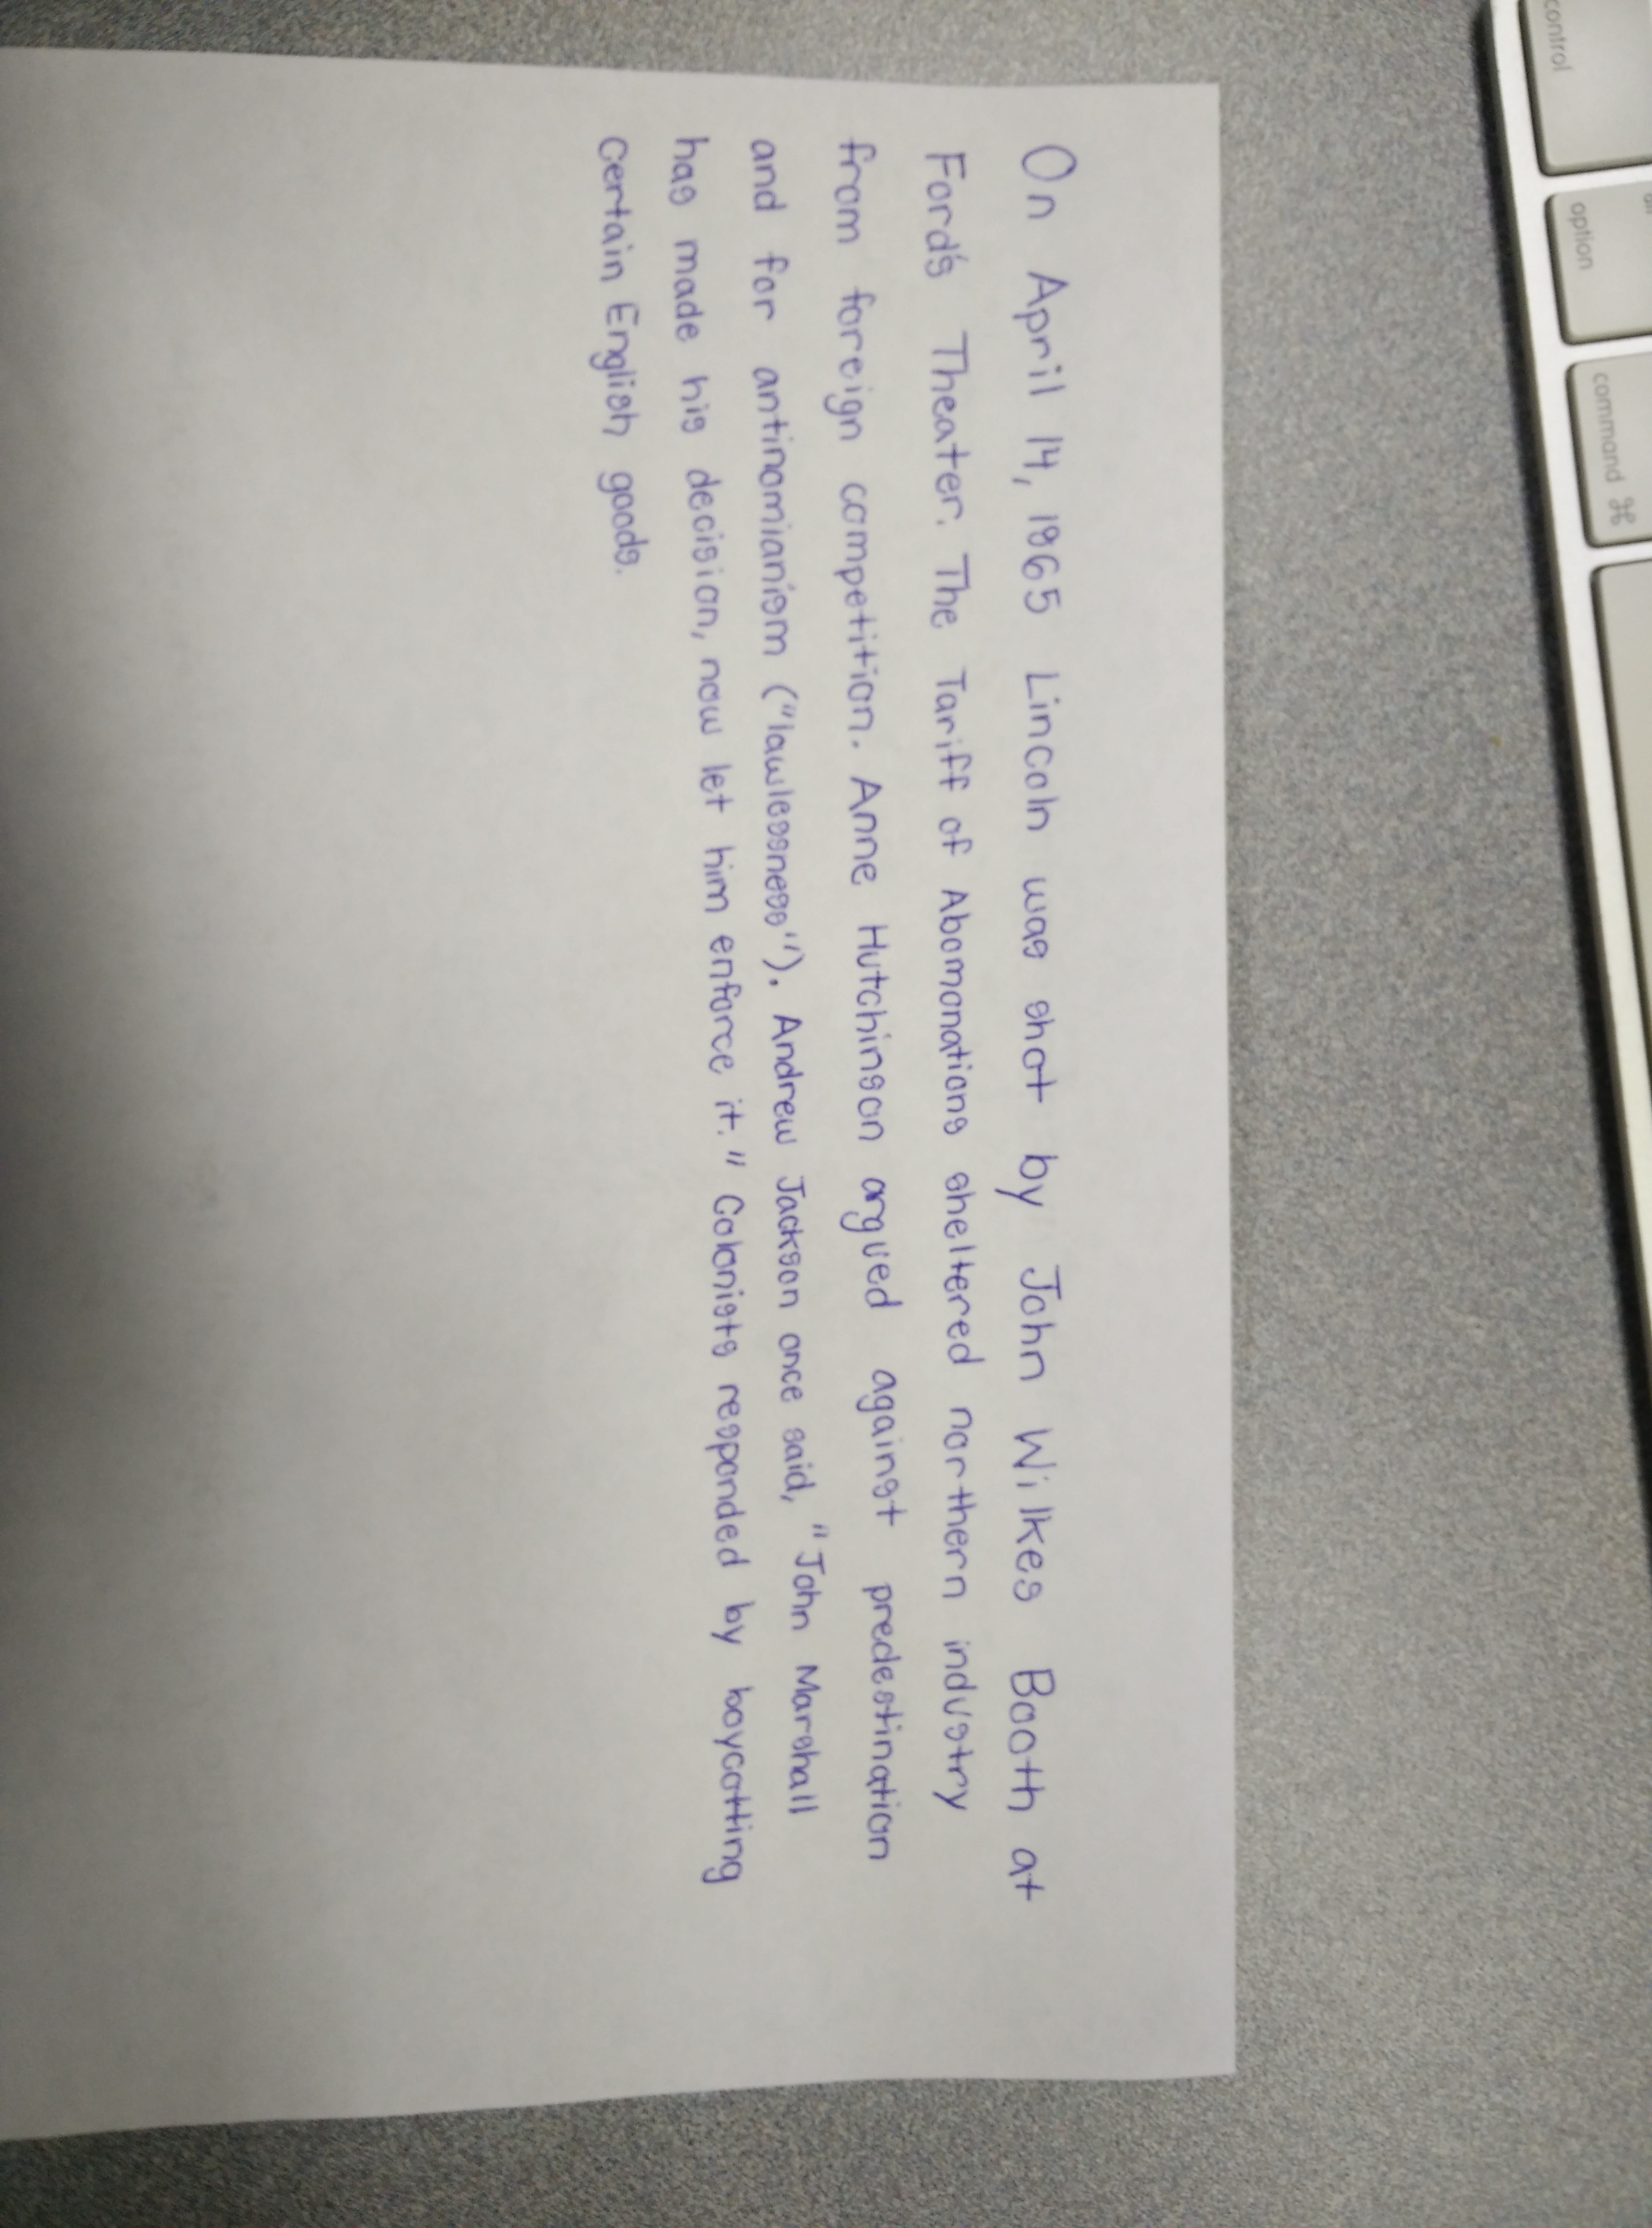 On April 14, 1865 Lincoln was shot by John Wilkes Booth at
Ford's Theater. The Tariff of Abomonations sheltered northern industry
from foreign competition. Anne Hutchinson argued against predestination
and for antinomianism ("lawlessness"). Andrew Jackson once said, "John Marshall
has made his decision, now let him enforce it." Colonists responded by boycotting
certain English goods.
control
option
command ⌘